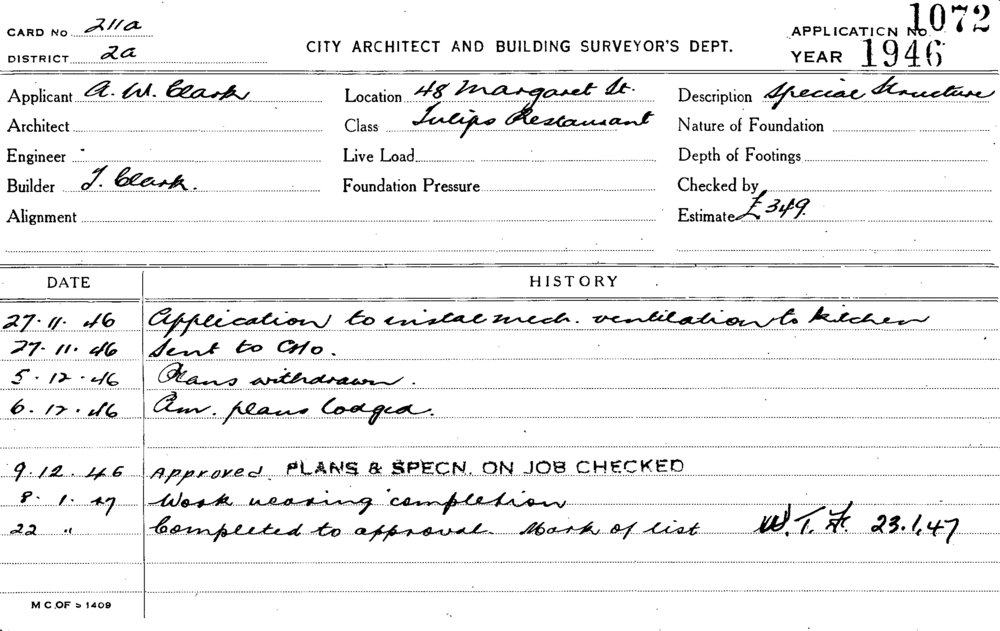 CARD NO 211a
DISTRICT 2a
CITY ARCHITECT AND BUILDING SURVEYOR'S DEPT.
APPLICATION No. 1072
YEAR 1946
Applicant A. W. Clark
Location 48 Margaret St.
Description Special Structure
Architect
Class Tulips Restaurant
Nature of Foundation
Engineer
Live Load
Depth of Footings
Builder J. Clark.
Foundation Pressure
Checked by
Alignment
Estimate £349.
DATE HISTORY
27.11.46 Application to instal mech. ventilation to kitchen
27.11.46 Sent to CHO.
5.12.46 Plans withdrawn.
6.12.46 Am. plans lodged.
9.12.46 Approved. PLANS & SPECN. ON JOB CHECKED
8.1.47 Work nearing completion
22 " Completed to approval. Mark of list W.T.F. 23.1.47
M C OF S 1409